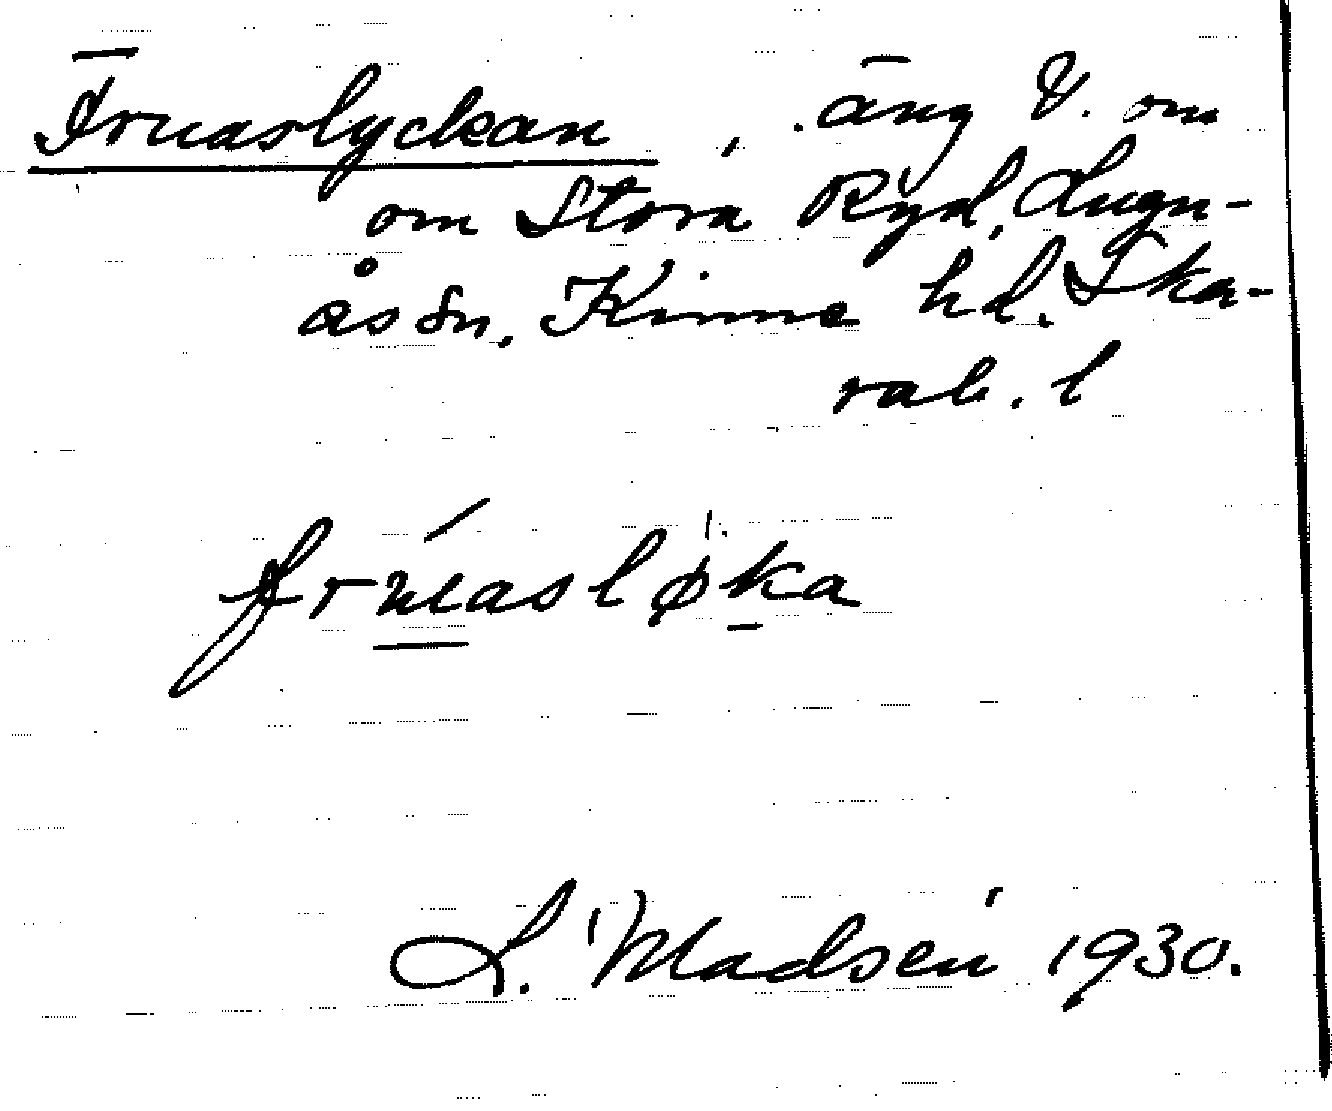 Fruaslyckan, äng V. om
om Stora Ryd, Lugn-
ås sn. Kinne hd. Ska-
rab. l
frúasløka
L. Madsén 1930.